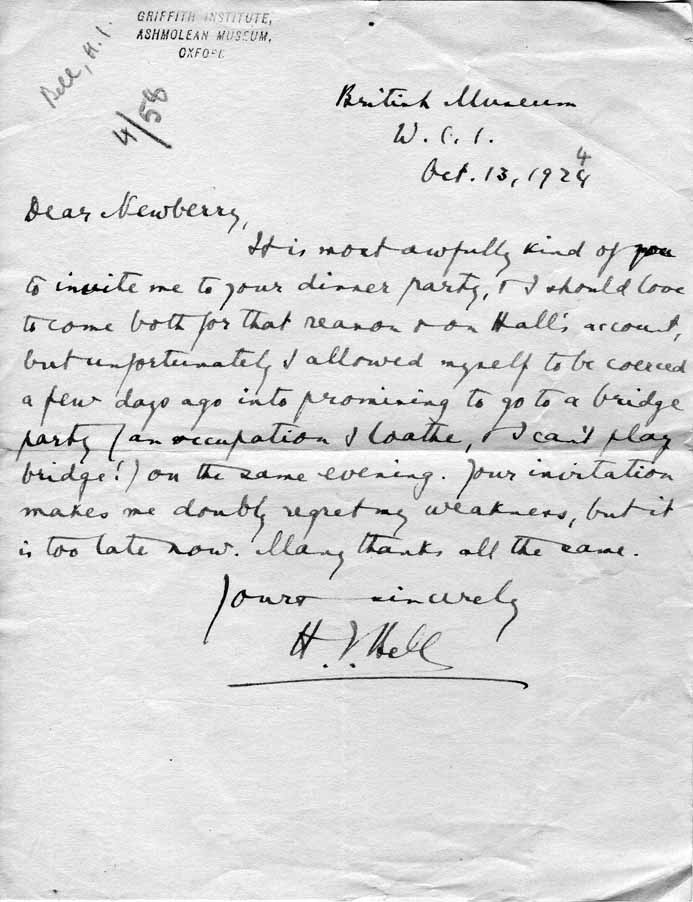 GRIFFITH INSTITUTE,
ASHMOLEAN MUSEUM,
OXFORD
Bell, H. I.
4/58
British Museum
W.C.1.
Oct. 13, 1924
Dear Newberry,
It is most awfully kind of you
to invite me to your dinner party, & I should love
to come both for that reason & on Hall's account,
but unfortunately I allowed myself to be coerced
a few days ago into promising to go to a bridge
party (an occupation I loathe, & I can't play
bridge!) on the same evening. Your invitation
makes me doubly regret my weakness, but it
is too late now. Many thanks all the same.
Yours sincerely
H. I. Bell